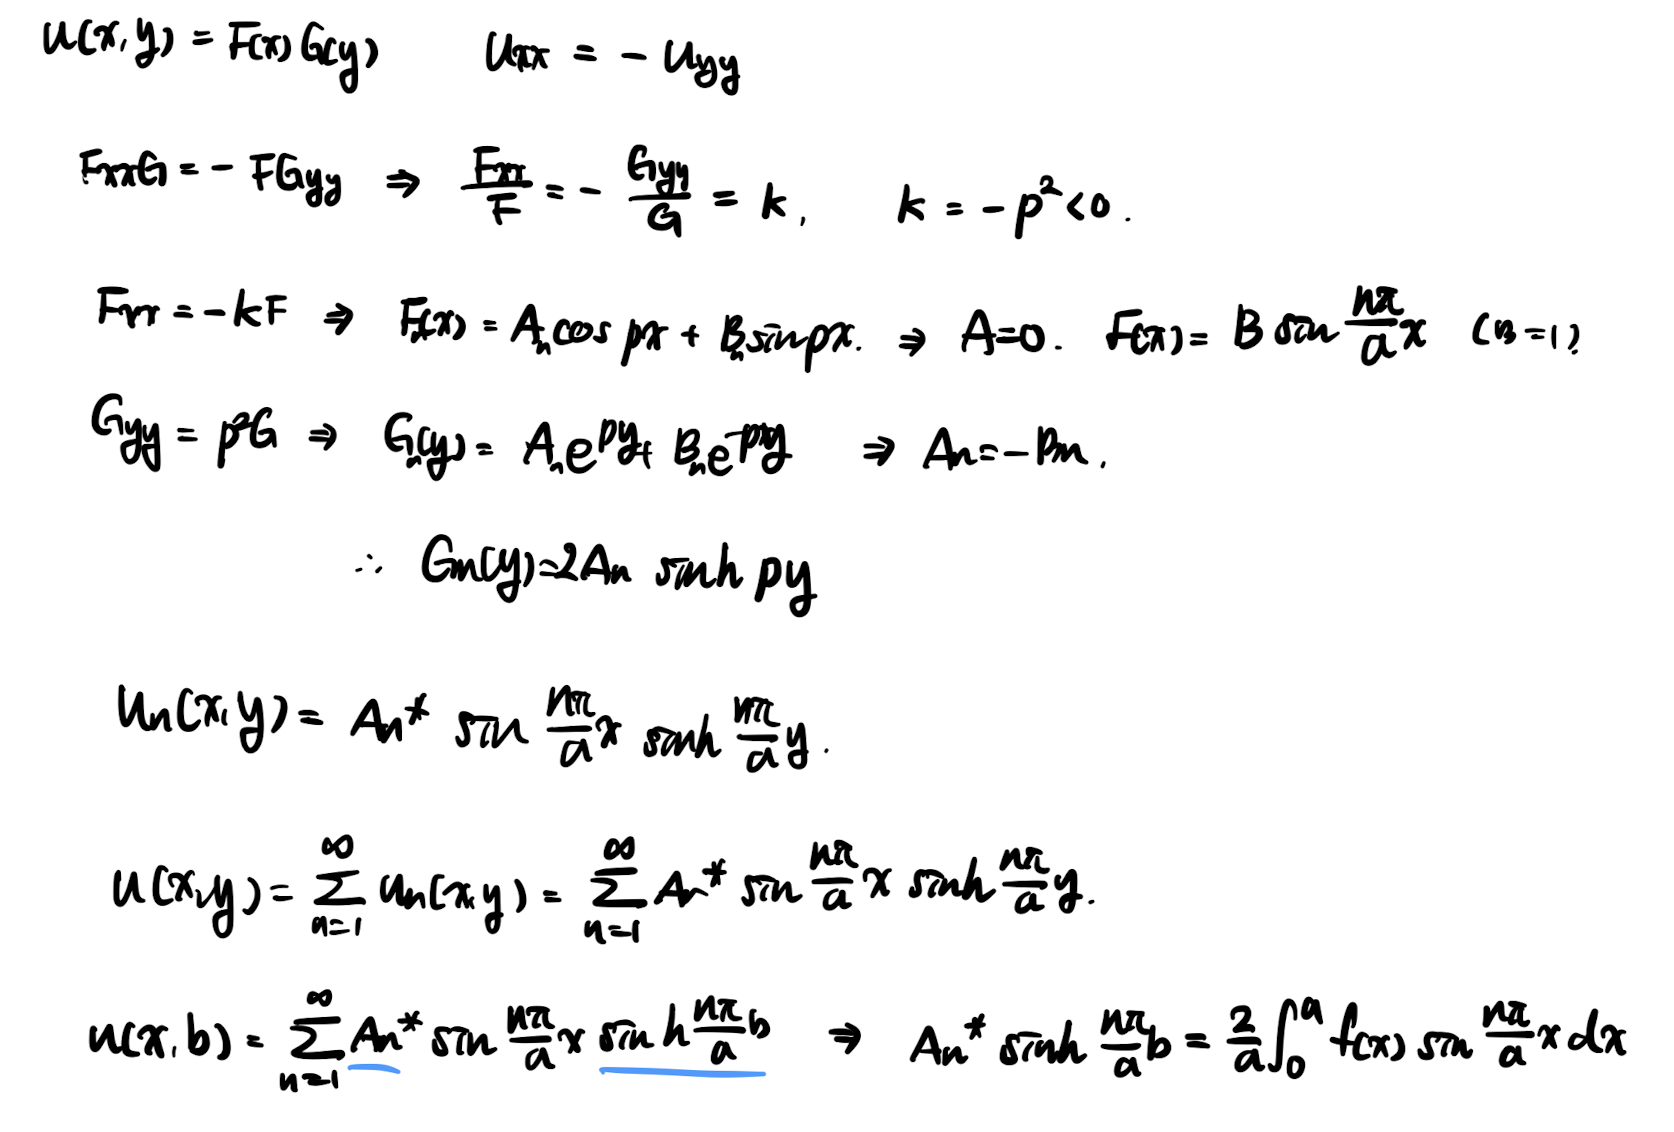 u(x,y) = F(x)G(y)    u_xx = - u_yy
F_xx G = - F G_yy ⇒ F_xx/F = - G_yy/G = k,    k = -p² < 0.
F_xx = -kF ⇒ F_n(x) = A_n cos px + B_n sin px. ⇒ A=0. F(x) = B sin nπ/a x (B=1)
G_yy = p²G ⇒ G_n(y) = A_n e^{py} + B_n e^{-py} ⇒ A_n = -B_n.
∴ G_n(y) = 2A_n sinh py
u_n(x,y) = A_n* sin nπ/a x sinh nπ/a y.
u(x,y) = ∑_{n=1}^{∞} u_n(x,y) = ∑_{n=1}^{∞} A_n* sin nπ/a x sinh nπ/a y.
u(x,b) = ∑_{n=1}^{∞} A_n* sin nπ/a x sinh nπ/a b ⇒ A_n* sinh nπ/a b = 2/a ∫_0^a f(x) sin nπ/a x dx